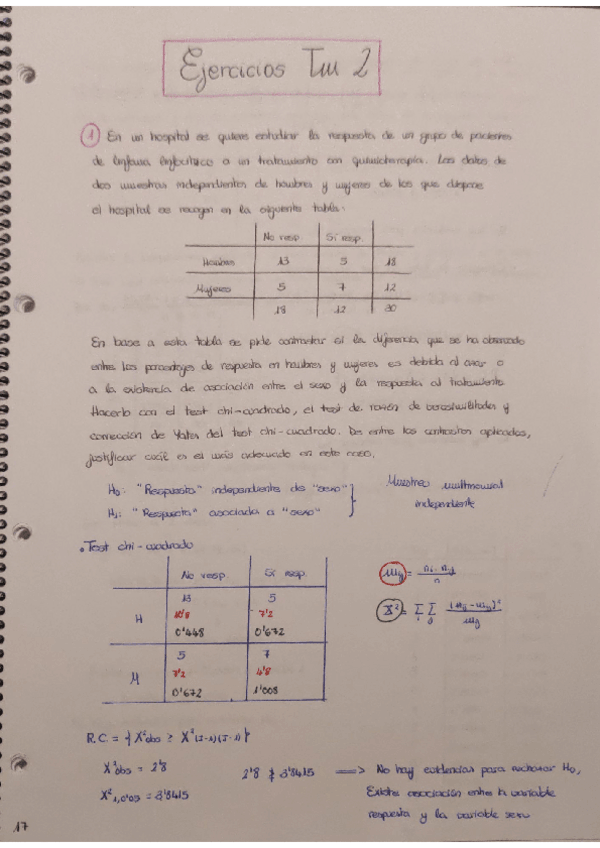 Ejercicios Tm 2
1 En un hospital se quiere estudiar la respuesta de un grupo de pacientes
de linfoma linfocítico a un tratamiento con quimioterapia. Los datos de
dos muestras independientes de hombres y mujeres de los que dispone
el hospital se recogen en la siguiente tabla:
No resp Sí resp
Hombres 13 5 18
Mujeres 5 7 12
18 12 30
En base a esta tabla se pide contrastar si la diferencia que se ha observado
entre los porcentajes de respuesta en hombres y mujeres es debida al azar o
a la existencia de asociación entre el sexo y la respuesta al tratamiento
Hacerlo con el test chi-cuadrado, el test de razón de verosimilitudes y
corrección de Yates del test chi-cuadrado. De entre los contrastes aplicados,
justificar cuál es el más adecuado en este caso.
H0: "Respuesta" independiente de "sexo"
H1: "Respuesta" asociada a "sexo"
Muestreo multinomial
independiente
• Test chi-cuadrado
No resp Sí resp
H
13 5
10'8 7'2
0'448 0'672
M
5 7
7'2 4'8
0'672 1'008
mij = ni. n.j / n
X² = Σi Σj (nij - mij)² / mij
R.C. = { X²obs ≥ X²(I-1)(J-1) }
X²obs = 2'8
X²1,0'05 = 3'8415
2'8 ≱ 3'8415 ==> No hay evidencias para rechazar H0,
Existe asociación entre la variable
respuesta y la variable sexo
17